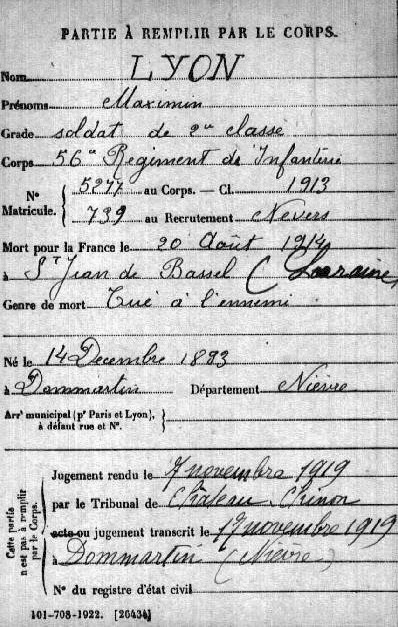 PARTIE À REMPLIR PAR LE CORPS.
Nom LYON
Prénoms Maximin
Grade soldat de 2me classe
Corps 56e Régiment de Infanterie
N° Matricule. { 5277 au Corps. — Cl. 1913
739 au Recrutement Nevers
Mort pour la France le 20 Août 1914
à St Jean de Bassel (Lorraine)
Genre de mort Tué à l'ennemi
Né le 14 Décembre 1893
à Dommartin Département Nièvre
Arrt municipal (pr Paris et Lyon), à défaut rue et N°. {
Cette partie n'est pas à remplir par le Corps. {
Jugement rendu le 7 novembre 1919
par le Tribunal de Château Chinon
acte ou jugement transcrit le 17 novembre 1919
à Dommartin (Nièvre)
N° du registre d'état civil
101-708-1922. [26434]